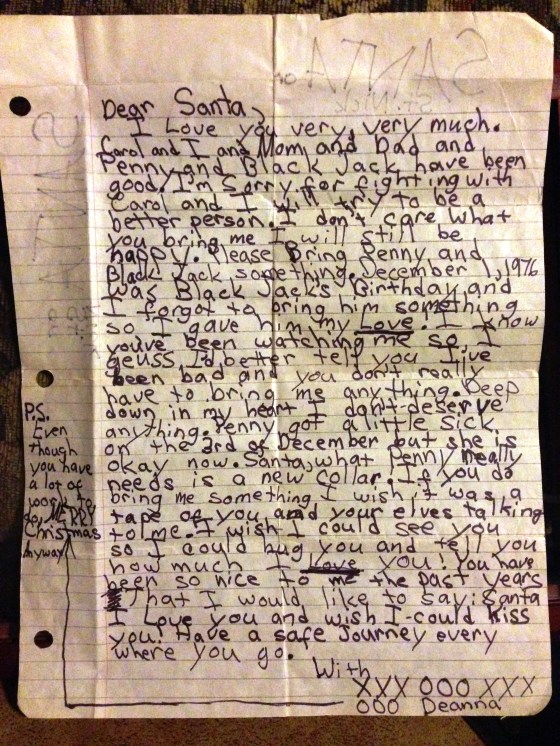 Dear Santa,
I Love you very, very much.
Carol and I and Mom, and Dad and
Penny and Black Jack have been
good. I'm Sorry for fighting with
Carol and I will try to be a
better person. I don't care what
you bring me I will still be
happy. Please Bring Penny and
Black Jack something. December 1, 1976
was Black Jack's Birthday and
I forgot to bring him something
so I gave him my Love. I know
you've been watching me so I
geuss I'd better tell you I've
been bad and you don't really
have to bring me anything. Deep
down in my heart I don't deserve
anything. Penny got a little sick
on the 3rd of December but she is
okay now. Santa, what Penny really
needs is a new collar. If you do
bring me something I wish it was a
tape of you and your elves talking
to me. I wish I could see you
so I could hug you and tell you
how much I Love you! You have
been so nice to me the past years
That I would like to say: Santa
I Love you and wish I could kiss
you! Have a safe Journey every
where you go.
With
XXX OOO XXX
OOO Deanna
P.S.
Even
though
you have
a lot of
work to
do, MERRY
Christmas
Anyway
SANTA
St. Nick
SANTA